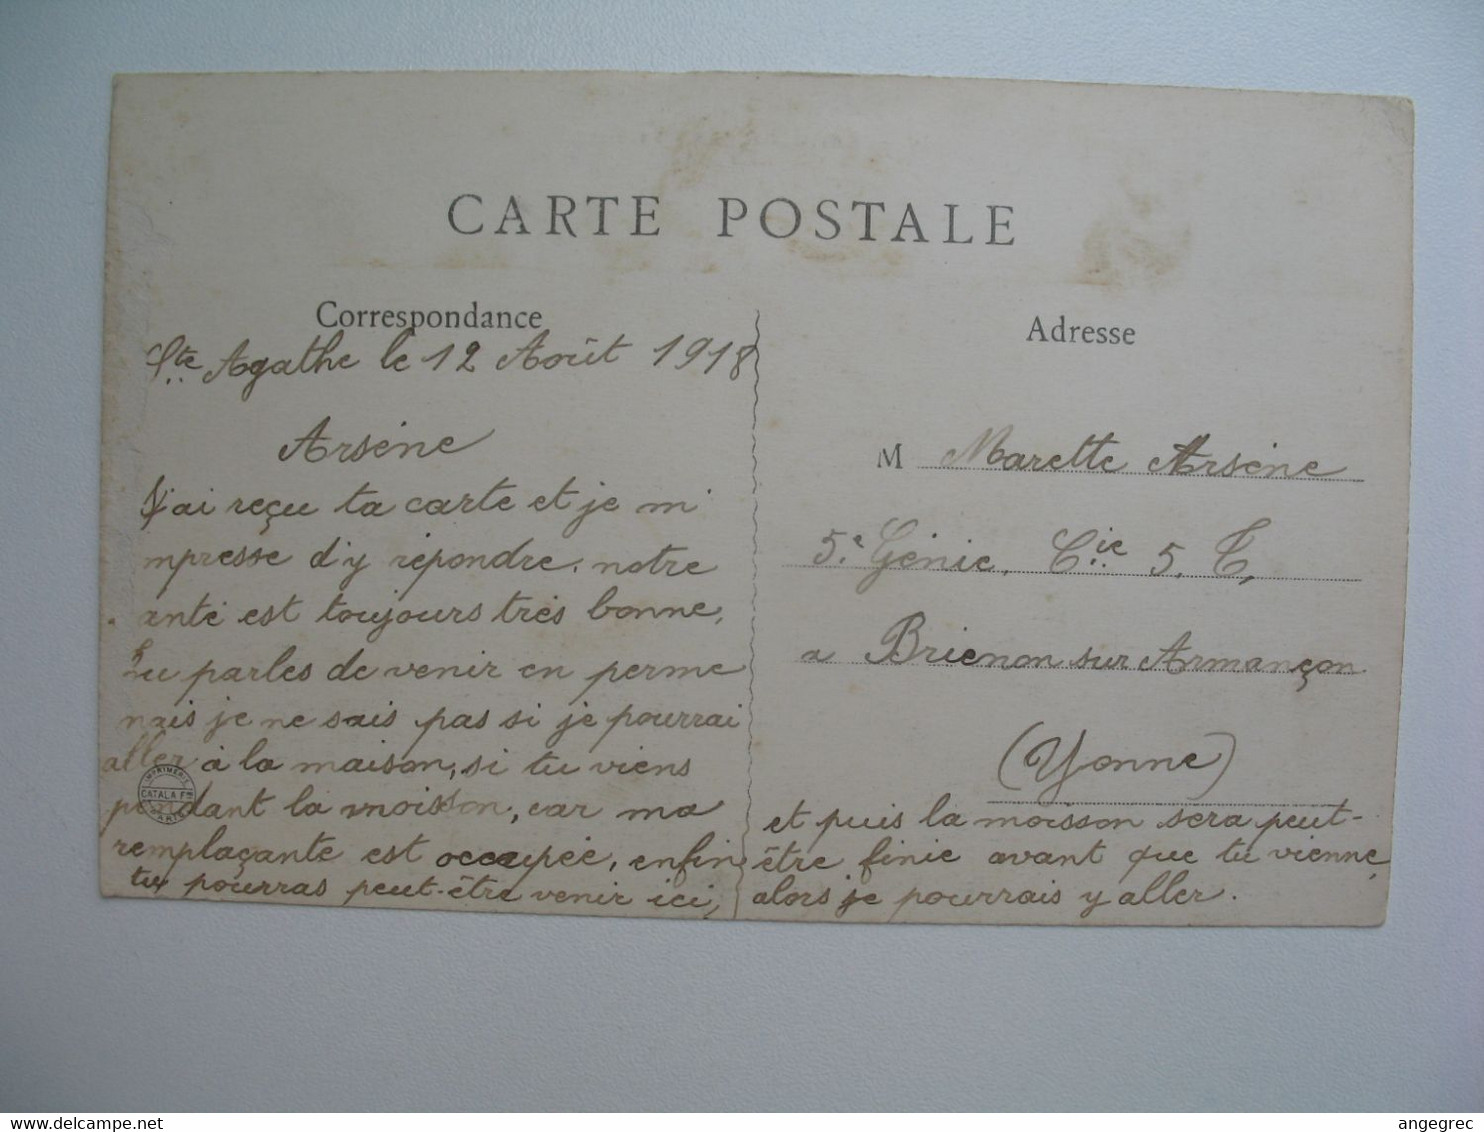 CARTE POSTALE
Correspondance
Ste Agathe le 12 Août 1918
Arsène
J'ai reçu ta carte et je m'
mpresse d'y répondre. notre
anté est toujours très bonne,
tu parles de venir en perme
mais je ne sais pas si je pourrai
aller à la maison, si tu viens
pendant la moisson, car ma
remplaçante est occupée, enfin
tu pourras peut-être venir ici,
IMPRIMERIE
CATALA Fres
PARIS
Adresse
M Marette Arsène
5e Génie, Cie 5. T,
a Brienon sur Armançon
(Yonne)
et puis la moisson sera peut-
être finie avant que tu vienne,
alors je pourrais y aller.
delcampe.net
angegrec